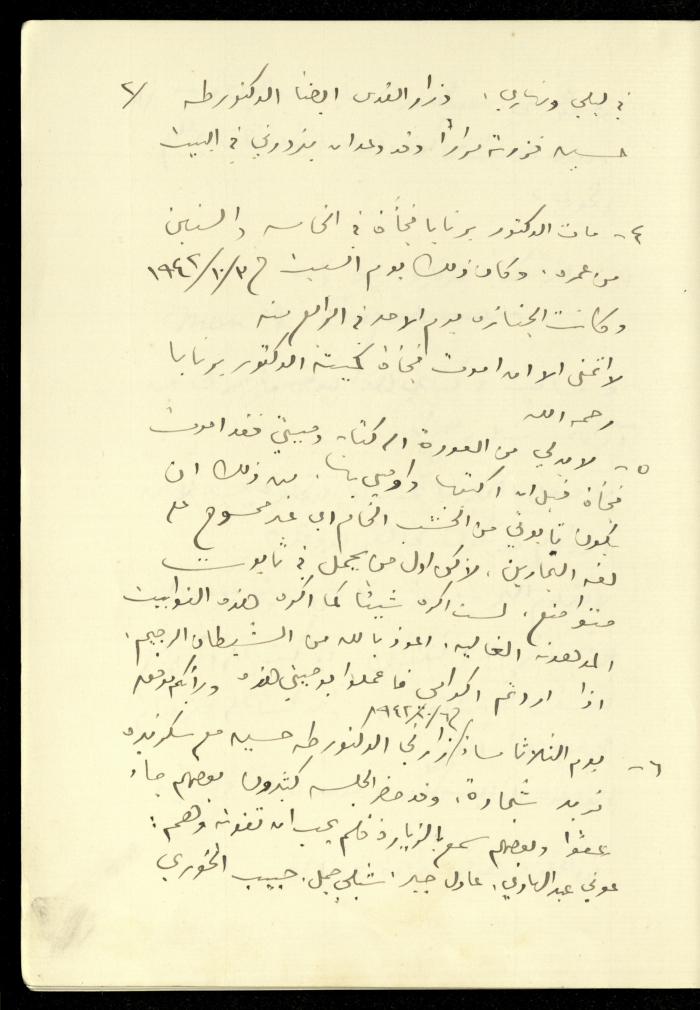 في ليلي ونهاري. وزار القدس ايضا الدكتور طه ٢/
حسين فزرته مرارًا وقد وعد ان يزورني في البيت
٤- مات الدكتور برنابا فجأة في الخامسه والستين
من عمره. وكان ذلك يوم السبت في ٣/١٠/١٩٤٢
وكانت الجنازه يوم الاحد في الرابع منه
لا اتمنى الا ان اموت فجأة كميتة الدكتور برنابا
رحمه الله
٥- لا بد لي من العودة الى كتابة وصيتي فقد اموت
فجأة قبل ان اكتبها واوصي بها. من ذلك ان
يكون تابوتي من الخشب الخام اي غير ممسوح على
لغة النجارين. لأكن اول من يحمل في تابوت
متواضع. لست اكره شيئا كما اكره هذه التوابيت
المدهونة الغاليه. اعوذ بالله من الشيطان الرجيم.
اذا اردتم اكرامي فاعملوا بوصيتي هذه ورأيكم موفق
٦- يوم الثلاثا مساءً في ٦/١٠/١٩٤٢ زارني الدكتور طه حسين مع سكرتيره
فريد شحادة. وقد حضر الجلسه كثيرون بعضهم جاء
عفوًا وبعضهم سمع بالزيارة فلم يحب ان تفوته وهم:
عوني عبد الهادي. عادل جبر. شبلي جمل. حبيب الخوري